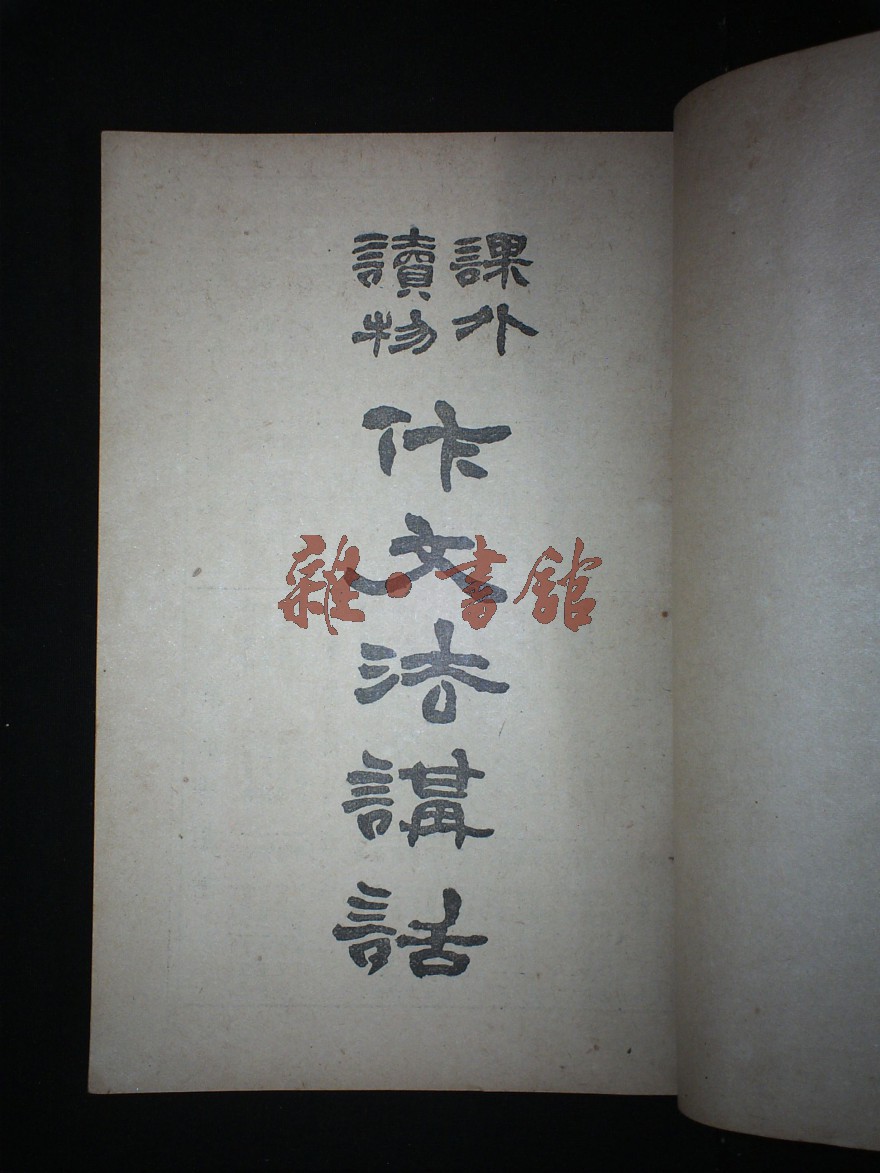 課外
讀物
作文法講話
雜·書館